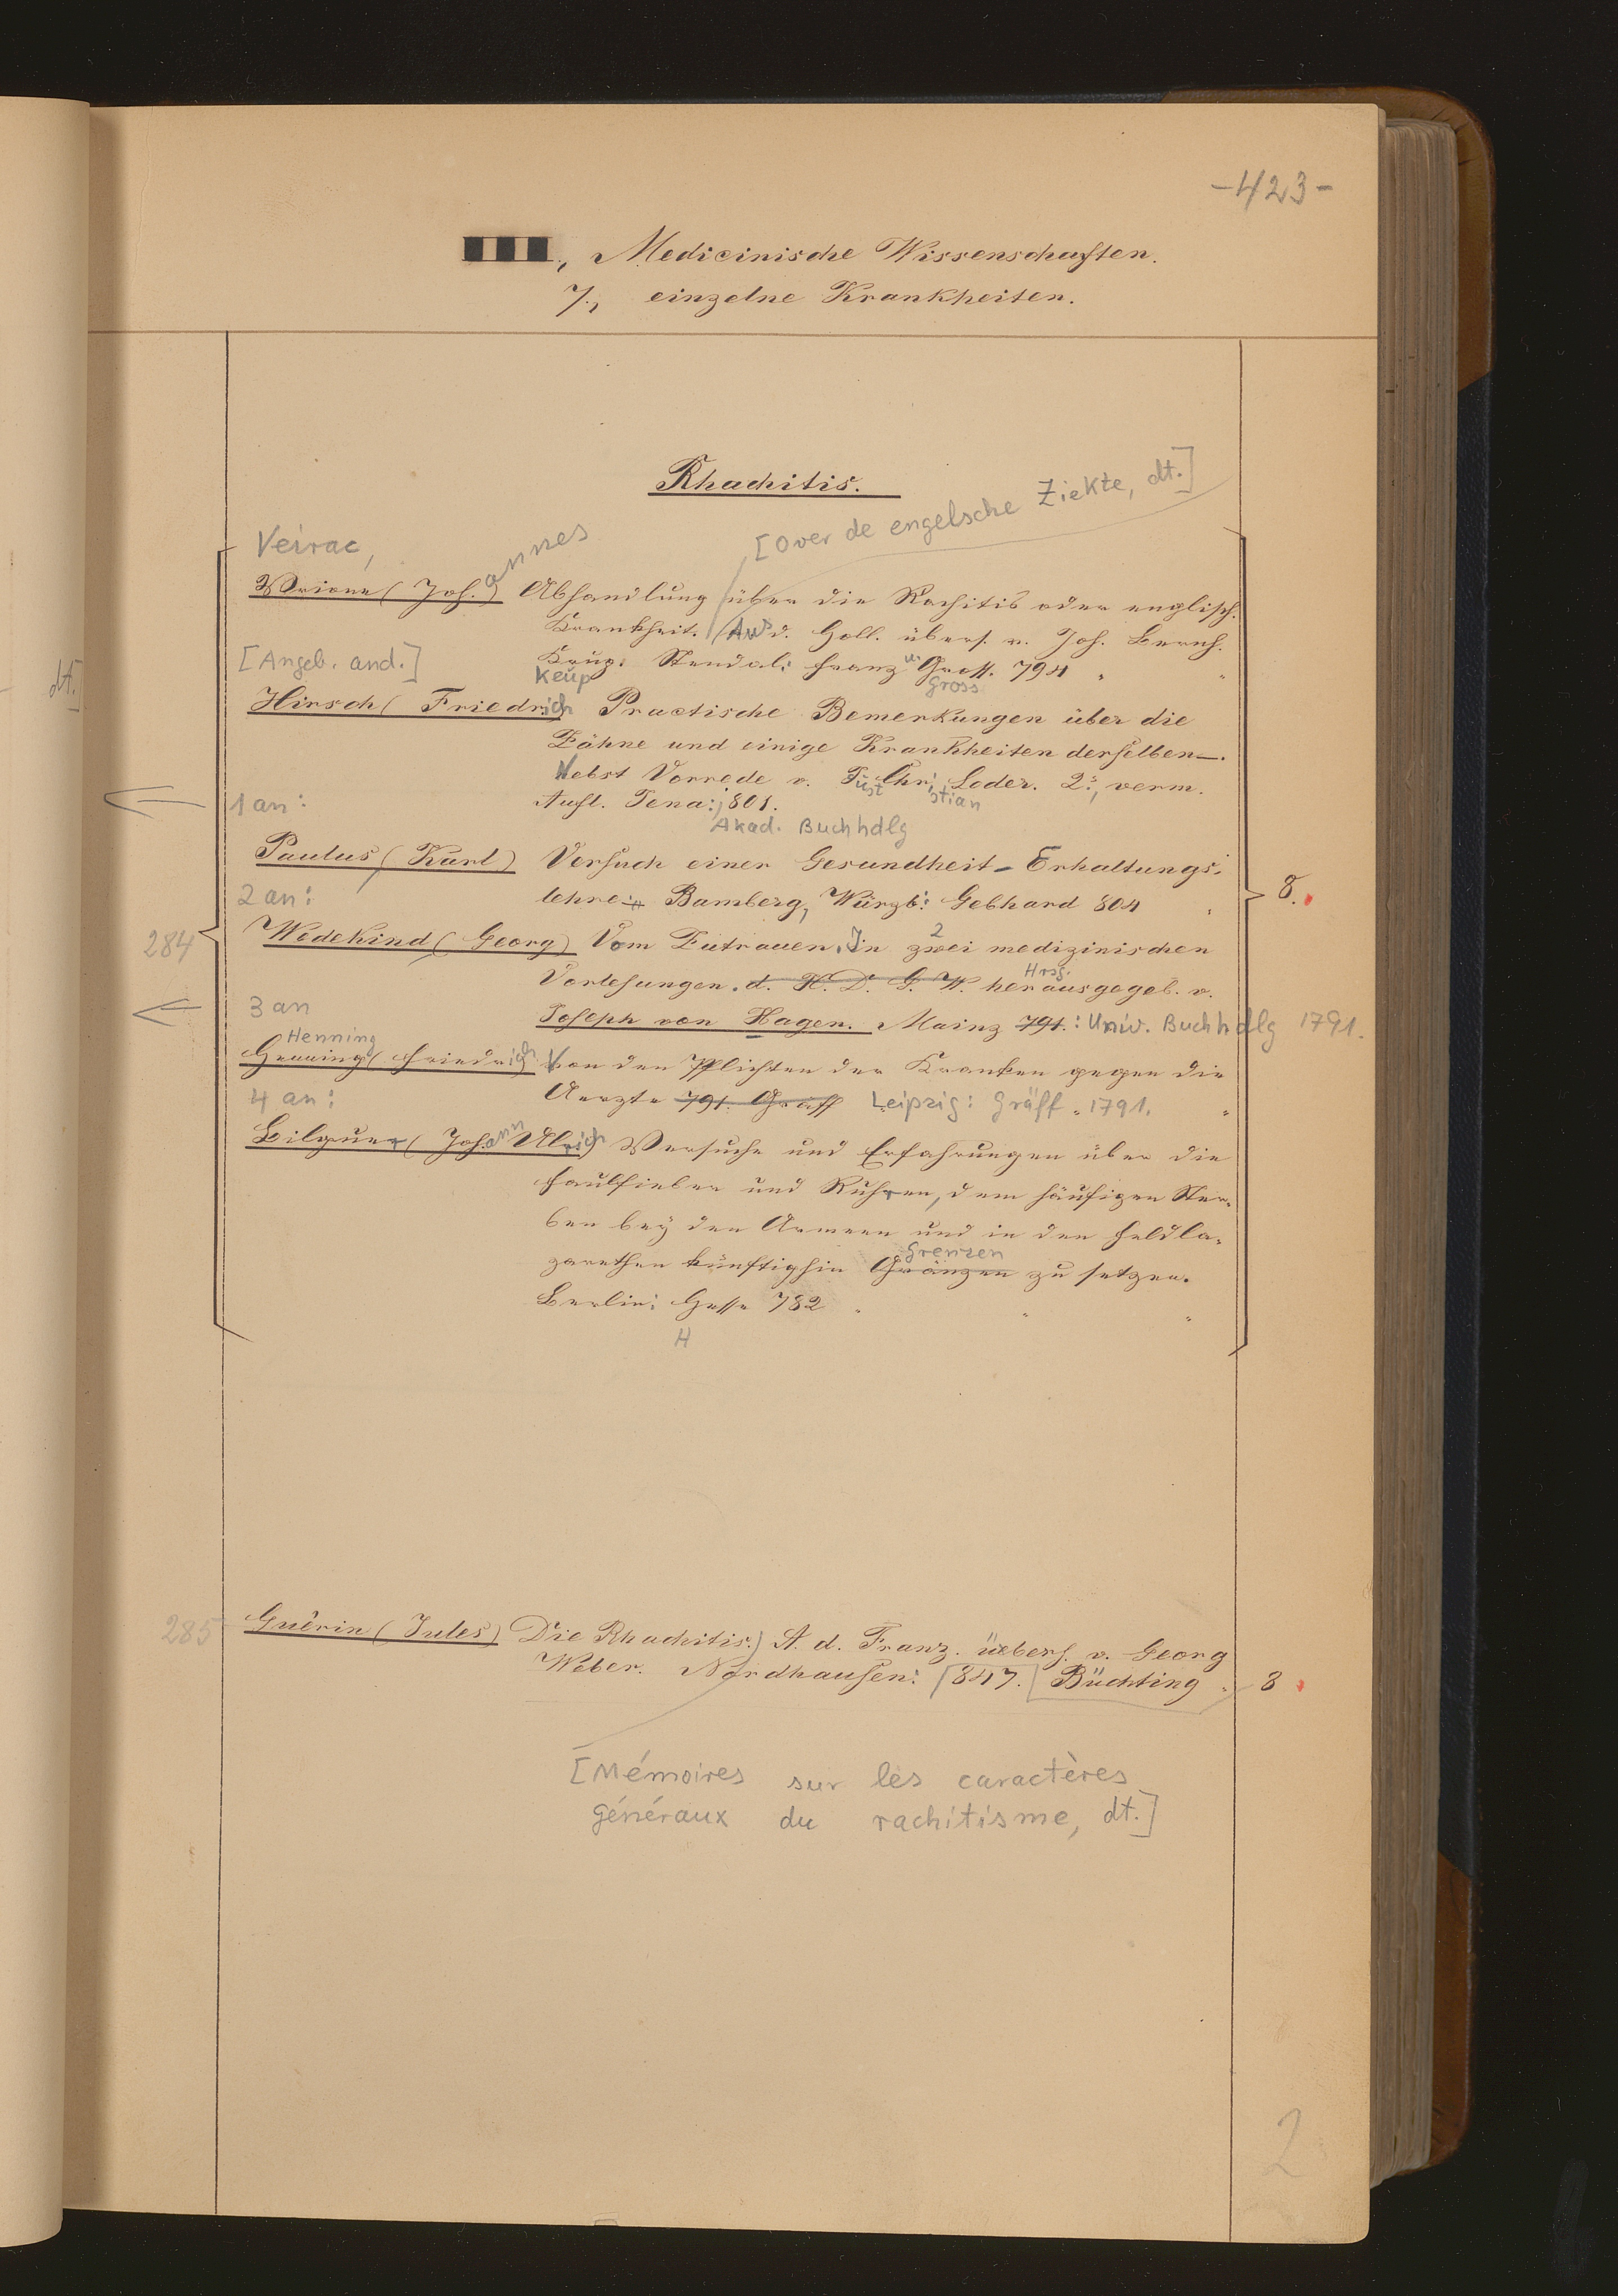 -423-
Medicinische Wissenschaften.
7., einzelne Krankheiten.
Rhachitis.
[Over de engelsche Ziekte, dt.]
Veirac, annes
(Joh.) Abhandlung über die Rachitis oder englisch.
Krankheit. (Aus d. Holl. übers. v. Joh. Bernh.
[Angeb. and.]
Keup Stendal: Franz u. Gross. 794
Gross
dt.]
Hirsch (Friedrich Practische Bemerkungen über die
Zähne und einige Krankheiten derselben.
Nebst Vorrede v. Just Christian Loder. 2., verm.
1 an:
Aufl. Jena: 801.
Akad. Buchhdlg
Paulus (Karl) Versuch einer Gesundheit-Erhaltungs-
2 an:
lehre. Bamberg, Würzb: Gebhard 804
8.
284
Wedekind (Georg) Vom Zutrauen. In zwei medizinischen
2
Vorlesungen. d. H. D. G. W. herausgegeb. v.
Hrsg.
3 an
Joseph von Hagen. Mainz 791. : Univ. Buchhdlg 1791.
Henning
Henning (Friedrich Von den Pflichten der Kranken gegen die
4 an:
Aerzte 791. Gräff Leipzig: Gräff 1791.
Bilguer (Johann Ulrich) Versuche und Erfahrungen über die
Faulfieber und Ruhren, dem häufigen Ster-
ben bey den Armeen und in den Feldla-
Grenzen
zarethen künftighin Gränzen zu setzen.
Berlin: Hesse 782
H
285
Guérin (Jules) Die Rhachitis.) A. d. Franz. übers. v. Georg
Weber. Nordhausen: 847. Büchting
8
[Mémoires sur les caractères
généraux du rachitisme, dt.]
2